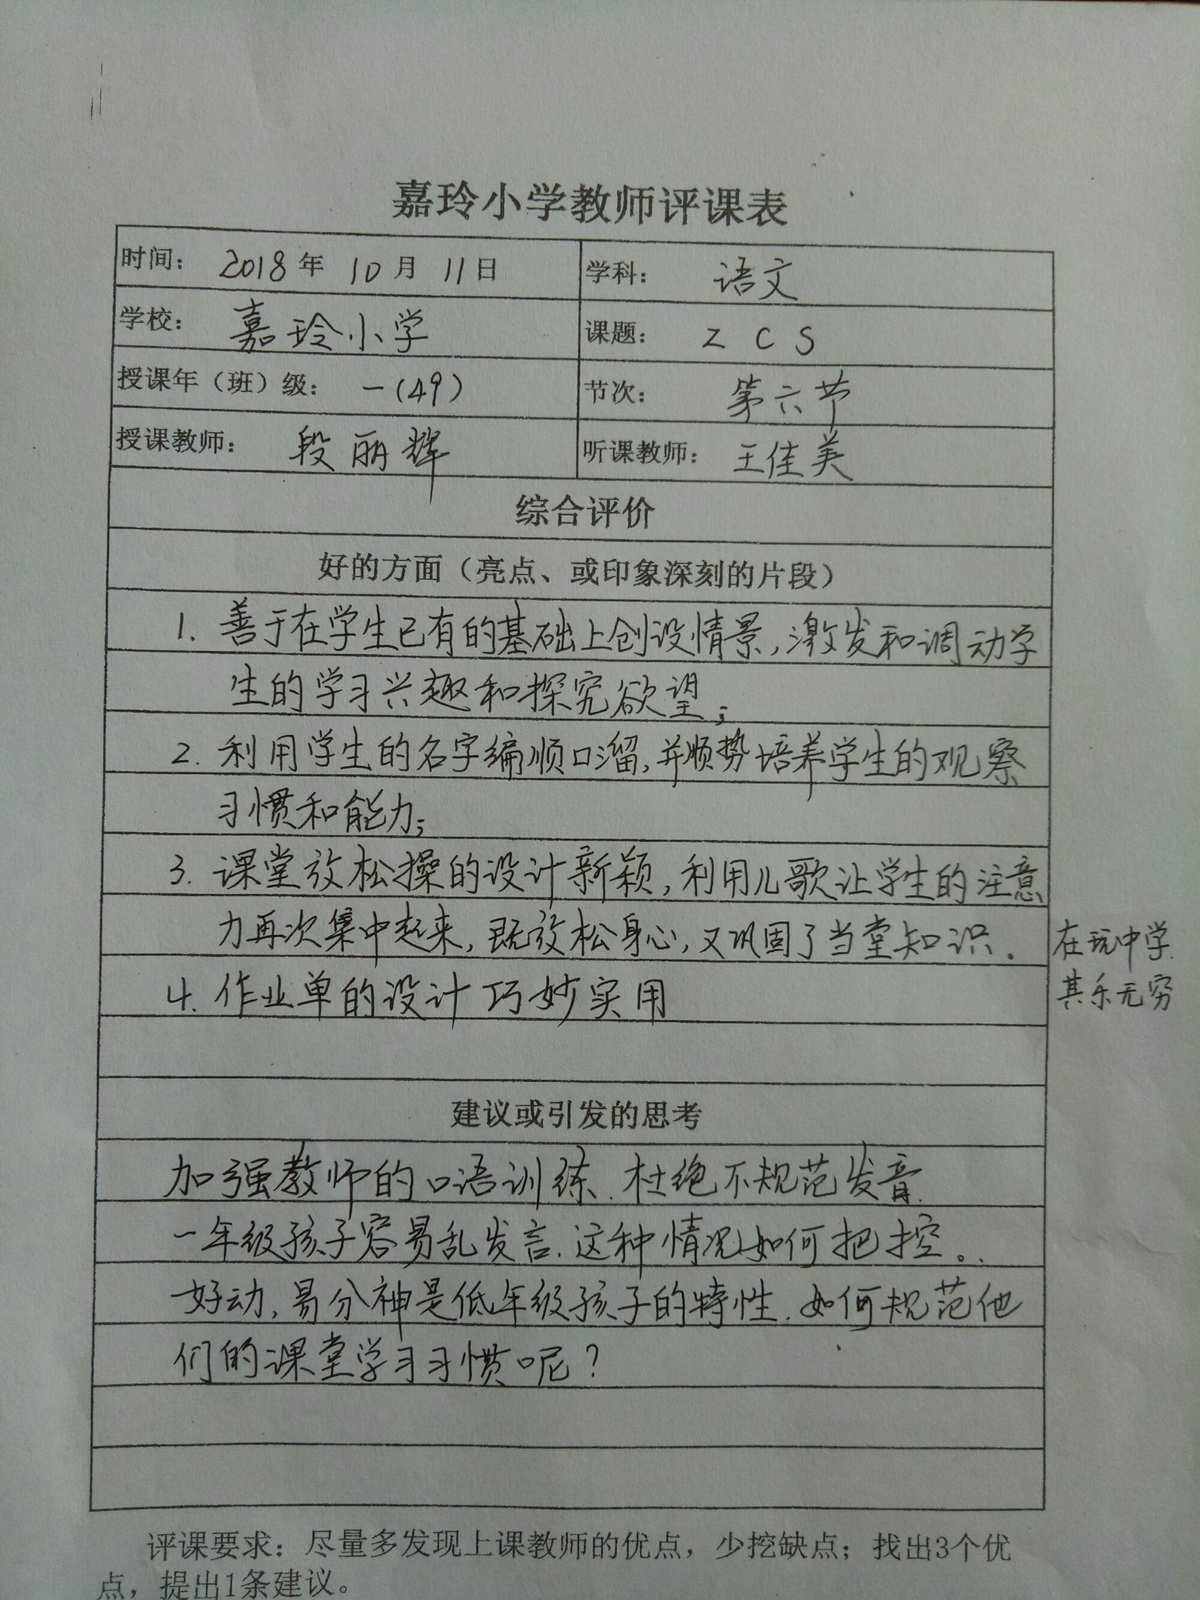 嘉玲小学教师评课表
时间： 2018 年 10 月 11 日 学科： 语文
学校： 嘉玲小学 课题： Z C S
授课年（班）级： 一(49) 节次： 第六节
授课教师： 段丽辉 听课教师： 王佳美
综合评价
好的方面（亮点、或印象深刻的片段）
1. 善于在学生已有的基础上创设情景,激发和调动学
生的学习兴趣和探究欲望;
2. 利用学生的名字编顺口溜,并顺势培养学生的观察
习惯和能力;
3. 课堂放松操的设计新颖,利用儿歌让学生的注意
力再次集中起来,既放松身心,又巩固了当堂知识. 在玩中学.
4. 作业单的设计巧妙实用 其乐无穷
建议或引发的思考
加强教师的口语训练.杜绝不规范发音.
一年级孩子容易乱发言.这种情况如何把控。
好动,易分神是低年级孩子的特性.如何规范他
们的课堂学习习惯呢?
评课要求：尽量多发现上课教师的优点，少挖缺点；找出3个优
点，提出1条建议。